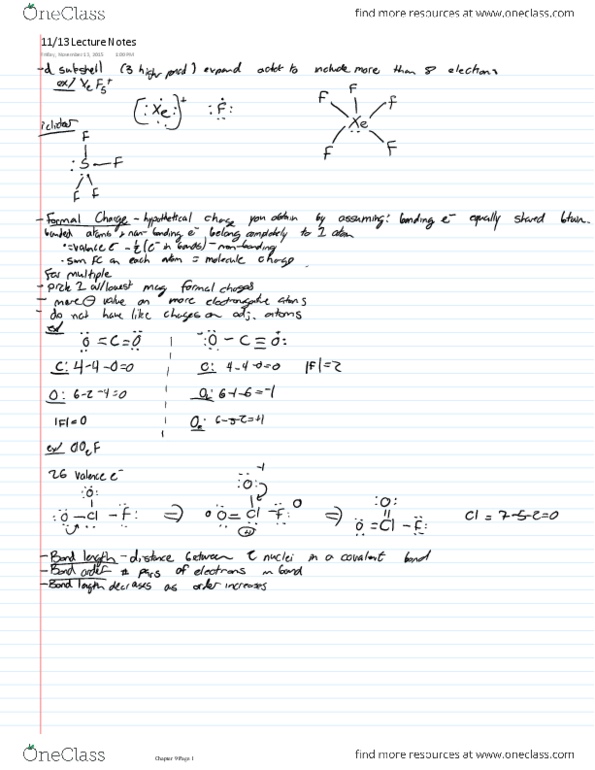 OneClass find more resources at www.oneclass.com
11/13 Lecture Notes
Friday, November 13, 2015 1:00 PM
-d subshell (3 higher pnod) expand octet to include more than 8 electrons
ex/ XeF5+
(:Xe:)+ :F:
F
F F
Xe
F F
F
:S-F
F F
-Formal Charge - hypothetical charge you obtain by assuming: bonding e- equally shared btwn.
bonded atoms + non-bonding e- belong completely to 1 atom
•=valence e- - ½(e- in bonds) - non-bonding
•sum FC on each atom = molecule charge
For multiple
-pick 1 w/lowest mag formal charges
- more ⊖ value on more electronegative atoms
- do not have like charges on adj. atoms
ex/
O=C=O :O-C≡O:
C: 4-4-0=0 C: 4-4-0=0 |F|=2
O: 6-2-4=0 O: 6-1-6=-1
|F|=0 O: 6-3-2=+1
ex/ ClO2F
26 valence e-
-1
:O: :O: :O:
:O-Cl-F: ⇒ 0 O=Cl-F: 0 ⇒ O=Cl-F: Cl=7-5-2=0
-Bond length - distance between 2 nuclei in a covalent bond
-Bond order # pairs of electrons in bond
-Bond length decrases as order increases
OneClass Chapter 9 Page 1 find more resources at www.oneclass.com